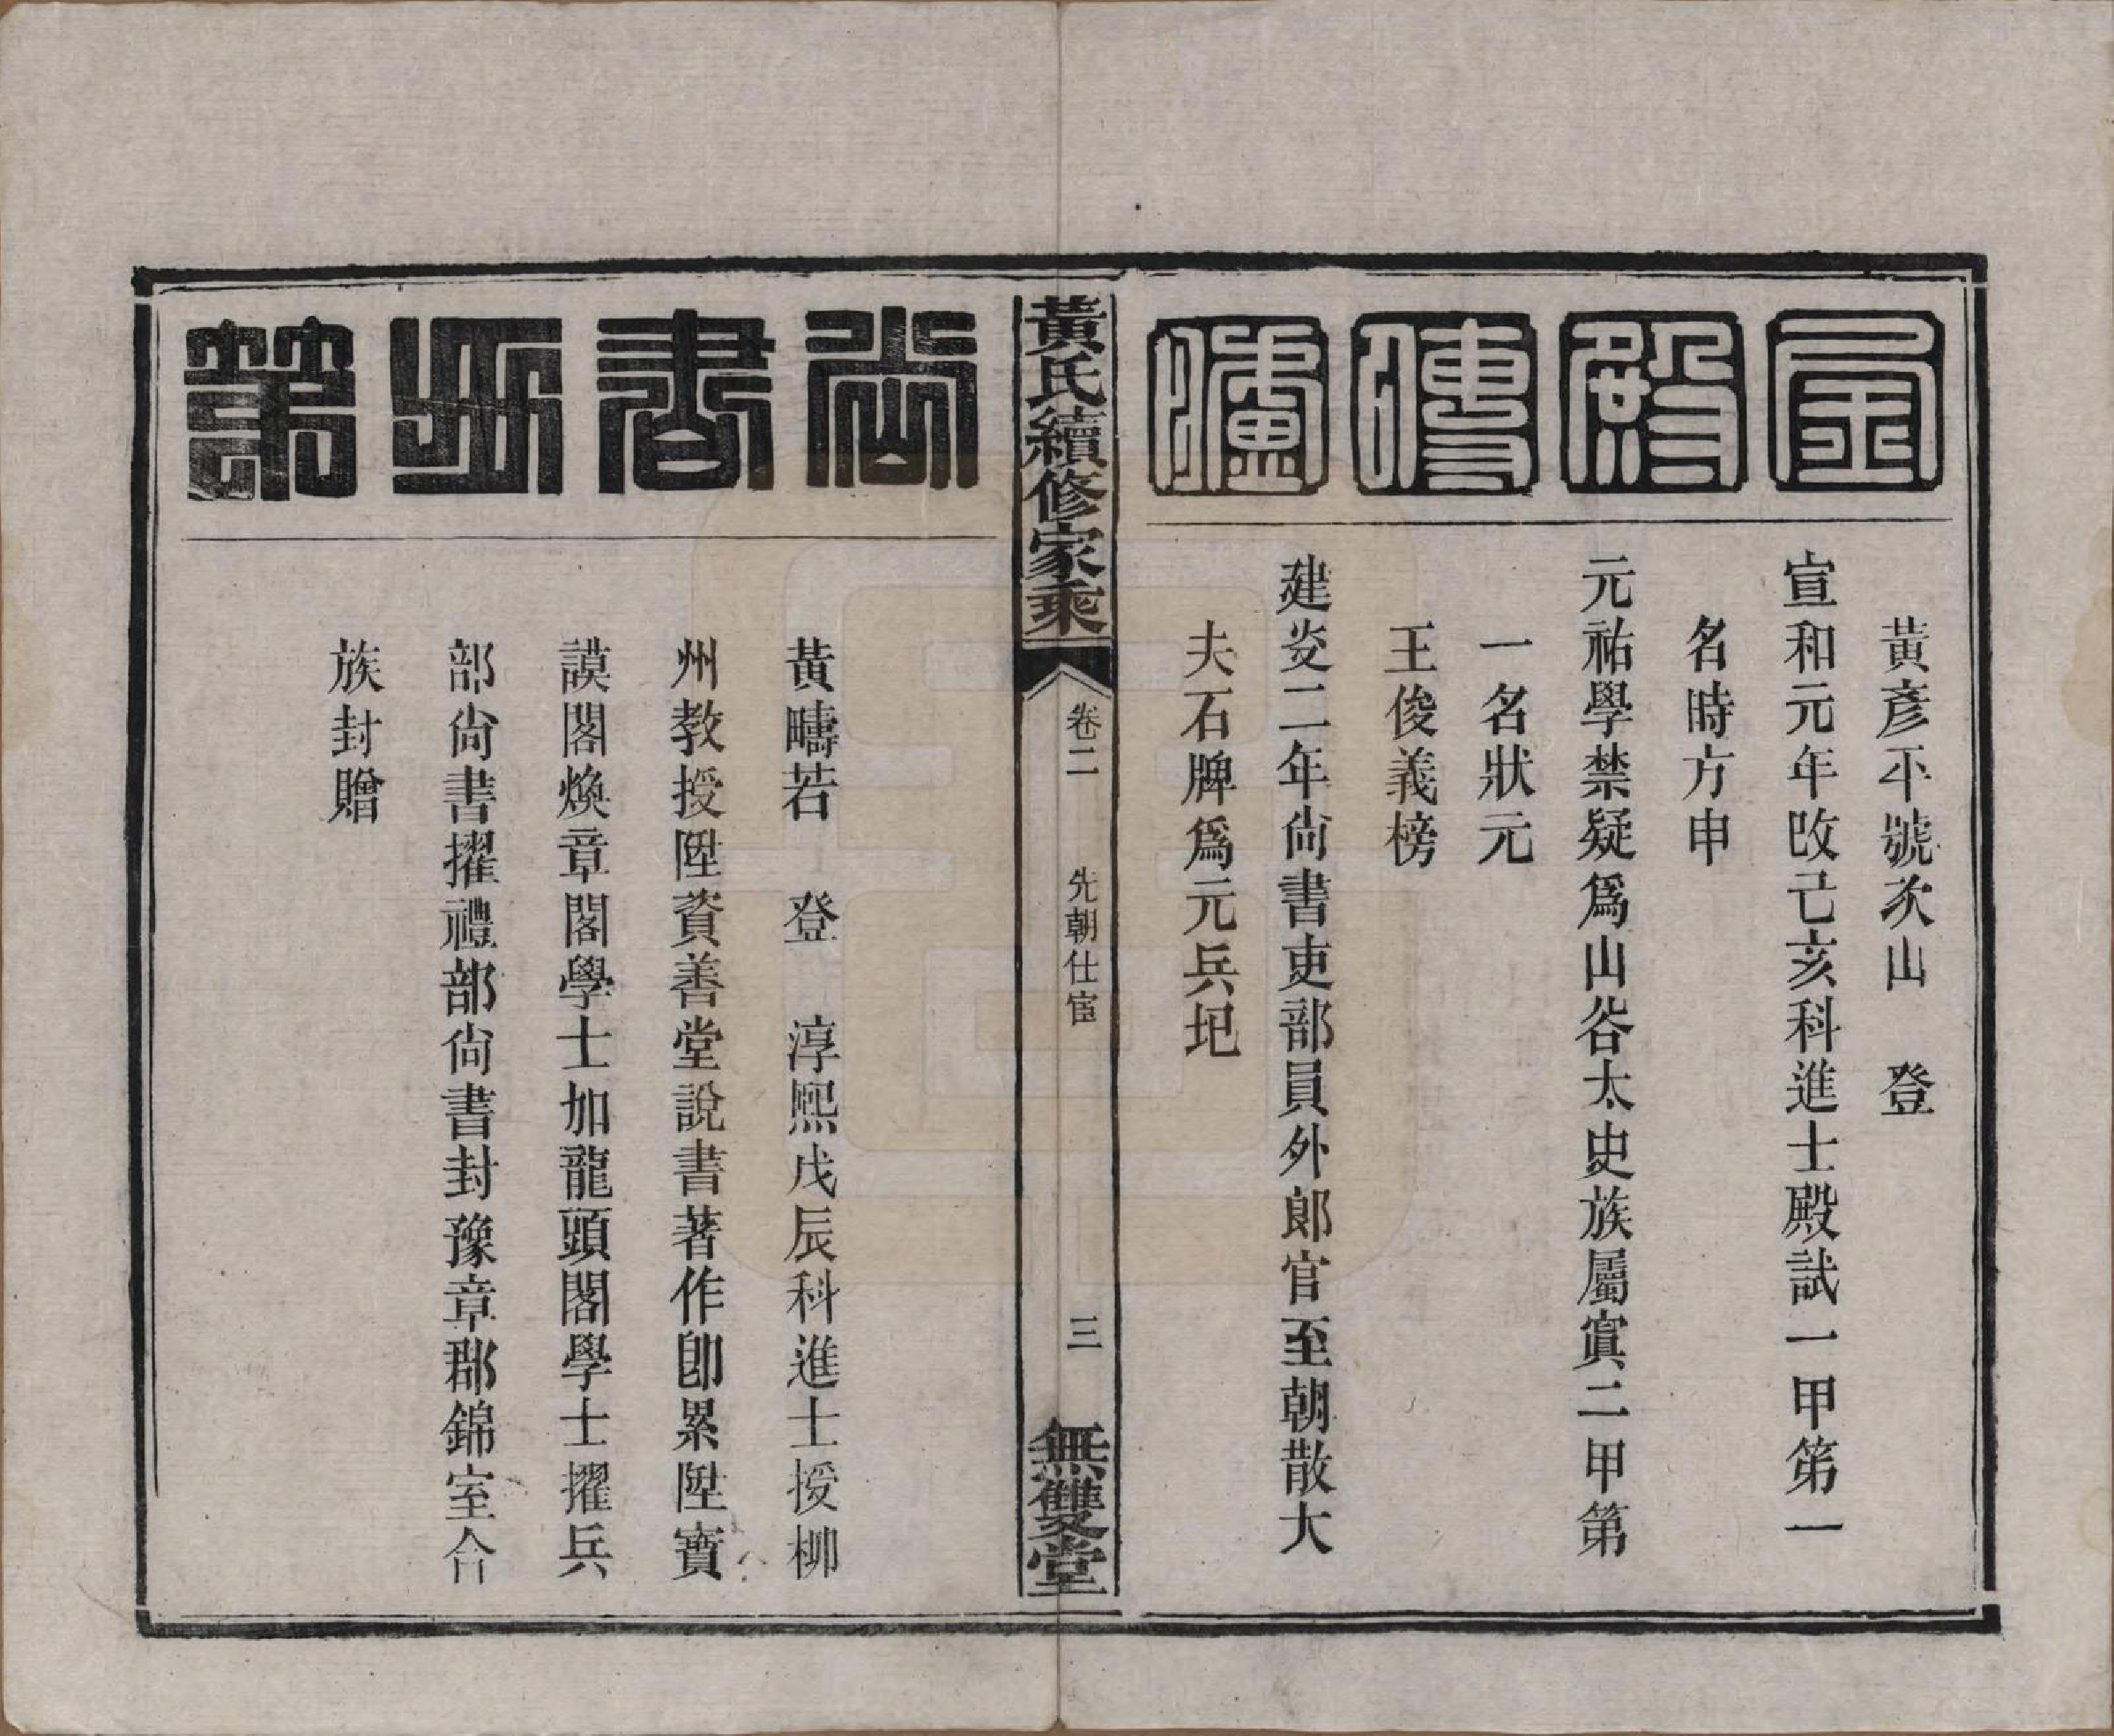 金殿傳臚
黃彥平號次山　登
宣和元年改己亥科進士殿試一甲第一
名時方申
元祐學禁疑爲山谷太史族屬寘二甲第
一名狀元
王俊義榜
建炎二年尙書吏部員外郞官至朝散大
夫石牌爲元兵圯
黃氏續修家乘
卷二
先朝仕宦
三
無雙堂
尚書 第
黃疇若　登　淳熙戊辰科進士授柳
州教授陞資善堂說書著作卽累陞寶
謨閣煥章閣學士加龍頭閣學士擢兵
部尙書擢禮部尙書封豫章郡錦室合
族封贈